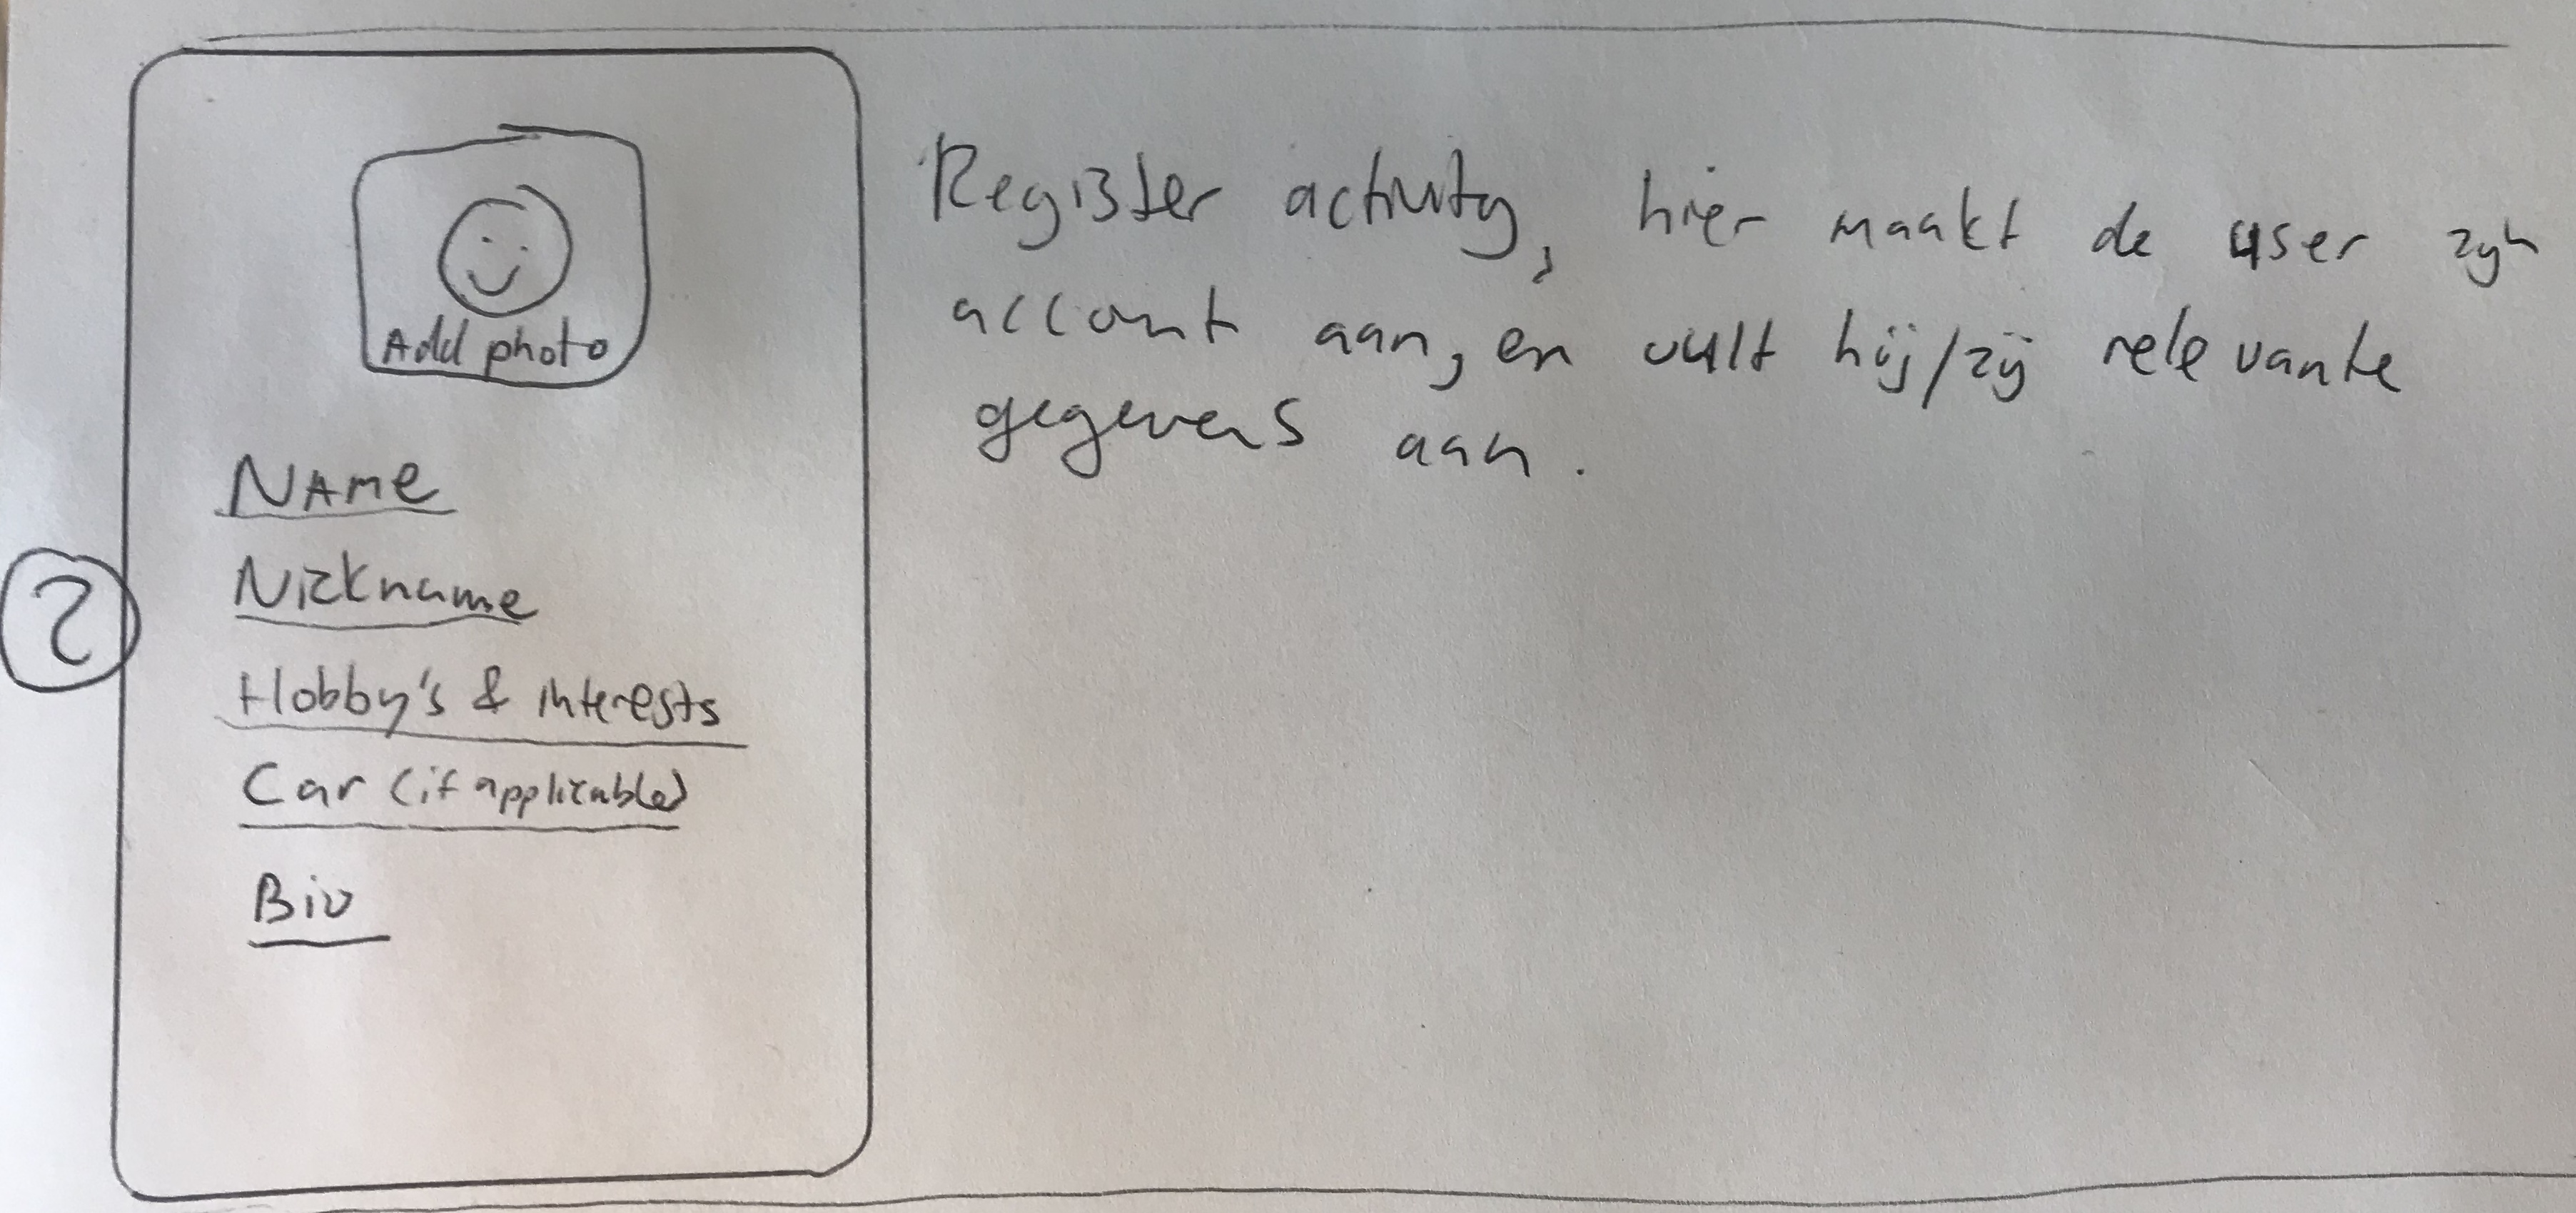 Add photo
Name
Nickname
Hobby's & interests
Car (if applicable)
Bio
2
Register activity, hier maakt de user zijn
account aan, en vult hij/zij relevante
gegevens aan.